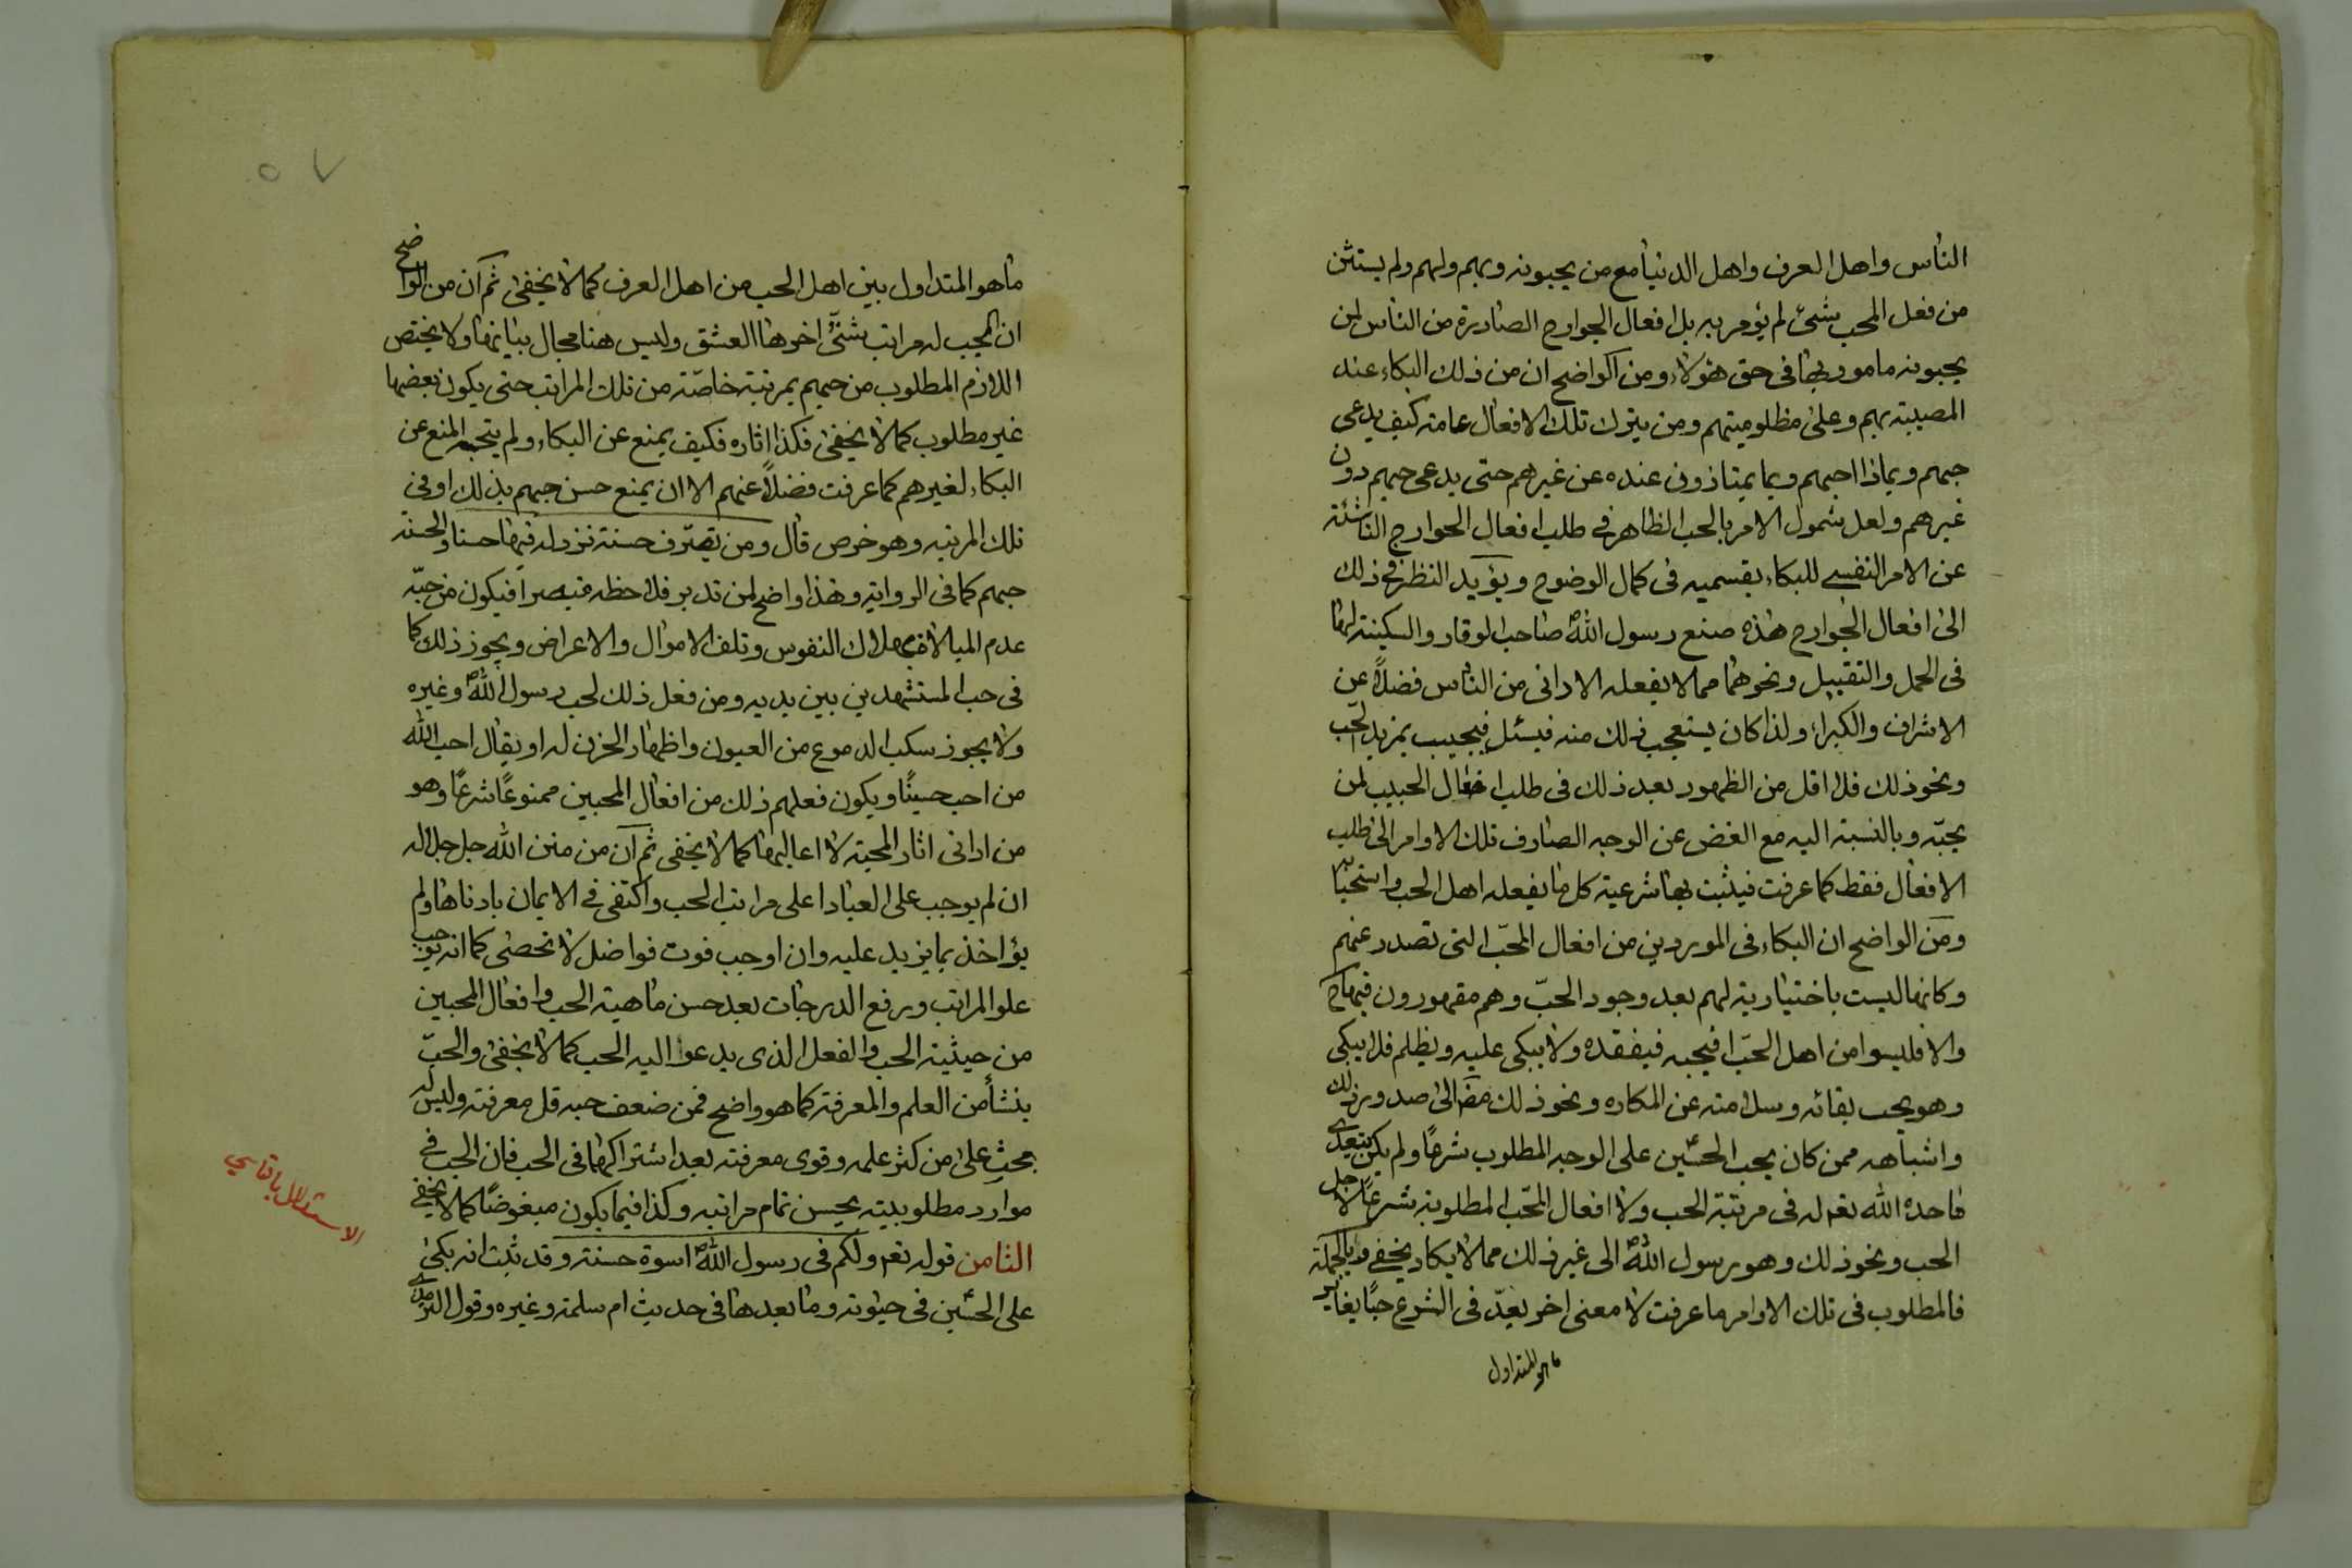 الناس واهل العرف واهل الدنيا مع من يحبونه وبهم ولهم ولم يستثن
من فعل المحب شئ لم يؤمر به بل افعال الجوارح الصادرة من الناس لمن
يحبونه مامور بها فى حق هؤلاء ومن الواضح ان من ذلك البكاء عند
المصيبة بهم وعلى مظلوميتهم ومن يترك تلك الافعال عامة كيف يدعى
حبهم وبماذا احبهم وبما يمتازون عنده عن غيرهم حتى يدعى حبهم دون
غيرهم ولعل شمول الامر بالحب الظاهر فى طلب افعال الجوارح الناشئة
عن الامر النفسى للبكاء بقسميه فى كمال الوضوح ويؤيد النظر فى ذلك
الى افعال الجوارح هذه صنع رسول الله ص صاحب الوقار والسكينة لهما
فى الحمل والتقبيل ونحوهما مما لا يفعله الادانى من الناس فضلاً عن
الاشراف والكبراء ولذا كان يستعجب ذلك منه فيسئل فيجيب بمزيد الحب
ونحو ذلك فلا اقل من الظهور بعد ذلك فى طلب افعال الحبيب لمن
يحبّه وبالنسبة اليه مع الغض عن الوجه الصارف تلك الاوامر الى طلب
الافعال فقط كما عرفت فيثبت بها شرعية كل ما يفعله اهل الحب واستحبابه
ومن الواضح ان البكاء فى الموردين من افعال المحبّ التى تصدر عنهم
وكانها ليست باختيارية لهم بعد وجود الحبّ وهم مقهورون فيها ح
والا فليسوا من اهل الحبّ افيحبه فيفقده ولا يبكى عليه ويظلم فلا يبكى
وهو يحب بقائه وسلامته عن المكاره ونحو ذلك الى صدور ذلك
واشباهه ممن كان يحب الحسين على الوجه المطلوب شرعًا ولم يكن يتعدى
ما حده الله تعم له فى مرتبة الحب ولا افعال المحّب المطلوبة شرعًا لاجل
الحب ونحو ذلك وهو رسول الله ص الى غير ذلك مما لا يكاد يخفى وبالجملة
فالمطلوب فى تلك الاوامر ما عرفت لا معنى اخر يعدّ فى الشرع حبًا يغاير
ما هو المتداول
٥٧
ما هو المتداول بين اهل الحب من اهل العرف كما لا يخفى ثم ان من الواضح
ان الحب له مراتب شتّى اخرها العشق وليس هنا مجال بيانها ولا يختص
اللازم المطلوب من حبهم بمرتبة خاصّة من تلك المراتب حتى يكون بعضها
غير مطلوب كما لا يخفى فكذا اثاره فكيف يمنع عن البكاء ولم يتجه المنع عن
البكاء لغيرهم كما عرفت فضلاً عنهم الا ان يمنع حسن حبهم بذلك او فى
تلك المرتبه وهو خرص قال ومن يقترف حسنة نزد له فيها حسنا والحسنة
حبهم كما فى الرواية وهذا واضح لمن تدبر فلاحظه متبصرا فيكون من حبّه
عدم المبالاة بهلاك النفوس وتلف الاموال والاعراض ويجوز ذلك كما
فى حب المستشهدين بين يديه ومن فعل ذلك لحب رسول الله ص وغيره
ولا يجوز سكب الدموع من العيون واظهار الحزن له او يقال احب الله
من احب حسينًا ويكون فعلهم ذلك من افعال المحبين ممنوعًا شرعًا وهو
من ادانى اثار المحبة لا اعاليها كما لا يخفى ثم ان من منن الله جل جلاله
ان لم يوجب على العباد اعلى مراتب الحب واكتفى فى الايمان بادناها ولم
يؤاخذ بما يزيد عليه وان اوجب فوت فواضل لا تحصى كما انه يوجب
علو المراتب ورفع الدرجات بعد حسن ماهية الحب وافعال المحبين
من حيثية الحب والفعل الذى يدعوا اليه الحب كما لا يخفى والحبّ
ينشأ من العلم والمعرفة كما هو واضح فمن ضعف حبه قل معرفته وليس له
بحث على من كثر علمه وقوى معرفته بعد اشتراكهما فى الحب فان الحب فى
موارد مطلوبيته يحسن تمام مراتبه وكذا فيما يكون مبغوضًا كما لا يخفى
الثامن قوله تعم ولكم فى رسول الله ص اسوة حسنة وقد ثبت انه بكى
على الحسين فى حيوته وما بعدها فى حديث ام سلمة وغيره وقول الترمذى
الاستدلال بالتاسي